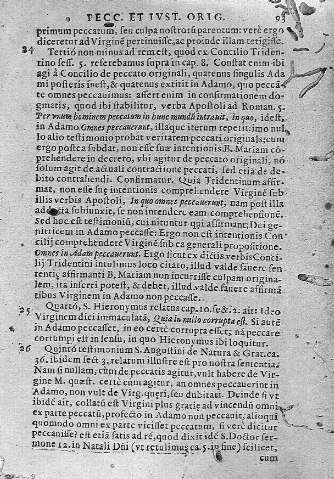 9 PECC. ET IVST. ORIG. 93
primum peccatum, sed culpa nostrorū parentum: verè ergo
diceretur ad Virginē pertinuisse, ac proinde illam tetigisse.
24 Tertiò non minus ad rem est, quod ex Concilio Tridenti-
no sess. 5. referebamus supra in cap. 8. Constat enim ibi
agi à Concilio de peccato originali, quatenus singulis Ada-
mi posteris inest, & quatenus extitit in Adamo, quo pecca-
te omnes peccauimus: affert enim in confirmationem do-
gmatis, quod ibi stabilitur, verba Apostoli ad Roman. 5.
Per vnum hominem peccatum in hunc mundū intrauit, In quo, idest,
in Adamo Omnes peccauerunt, illaque iterum repetit: imo nul-
lo alio testimonio probat veritatem peccati originalis: cum
ergo postea subdat, non esse suæ intentionis B. Mariam co-
prehendere in decreto, vbi agitur de peccato originali, nō
solum agit de actuali contractione peccati, sed etiā de de-
bito contrahendi. Confirmatur. Quia Tridentinum affir-
mat, non esse suę intentionis comprehendere Virginē sub
illis verbis Apostoli, In quo omnes peccauerunt, nam post illa
adducta subiunxit, se non intendere eam comprehendere.
Sed hoc est testimoniū, cui nituntur qui affirmant, Dei ge-
nitricem in Adamo peccasse: Ergo non est intentionis Con-
cilij comprehendere Virginē sub ea generali propositione.
Omnes in Adam peccauerunt. Ergo licet ex dictis verbis Conci-
lij Tridentini intulimus loco citato, illud valde fauere sen-
tentię, affirmanti B. Mariam non incurrisse culpam origina-
lem, ita inferri potest, & debet, illud valde fauere affirmā-
tibus Virginem in Adamo non peccasse.
25 Quartò, S. Hieronymus relatus cap. 10. sect. 2. ait: Ideo
Virginem dici immaculatā, Quia in nullo corrupta est. Si autē
in Adamo peccasset, in eo certè corrupta esset: nā peccare
corrumpi est in sensu, in quo Hieronymus ibi loquitur.
26 Quintò testimonium S. Augustini de Natura & Grat. ca.
36. ibidem sect. 3. relatum illustre est pro nostra sententia:
Nam si nullam, cum de peccatis agitur, vult habere de Vir-
gine M. quæst. certè cum agitur, an omnes peccauerint in
Adamo, non vult de Virg. quęri, seu dubitari. Deinde si vt
ibidē air, collatū est Virgini plus gratię ad vincendū omni
ex parte peccatū, profecto in Adamo non peccauit, alioqui
quomodo omni ex parte vicisset peccatum, si verè dicitur
peccasse? est etiā satis ad rē, quod dixit idē S. Doctor ser-
mone 12. in Natali Dn̄i (vt retulimus ca. 5. in fine) scilicet,
cum